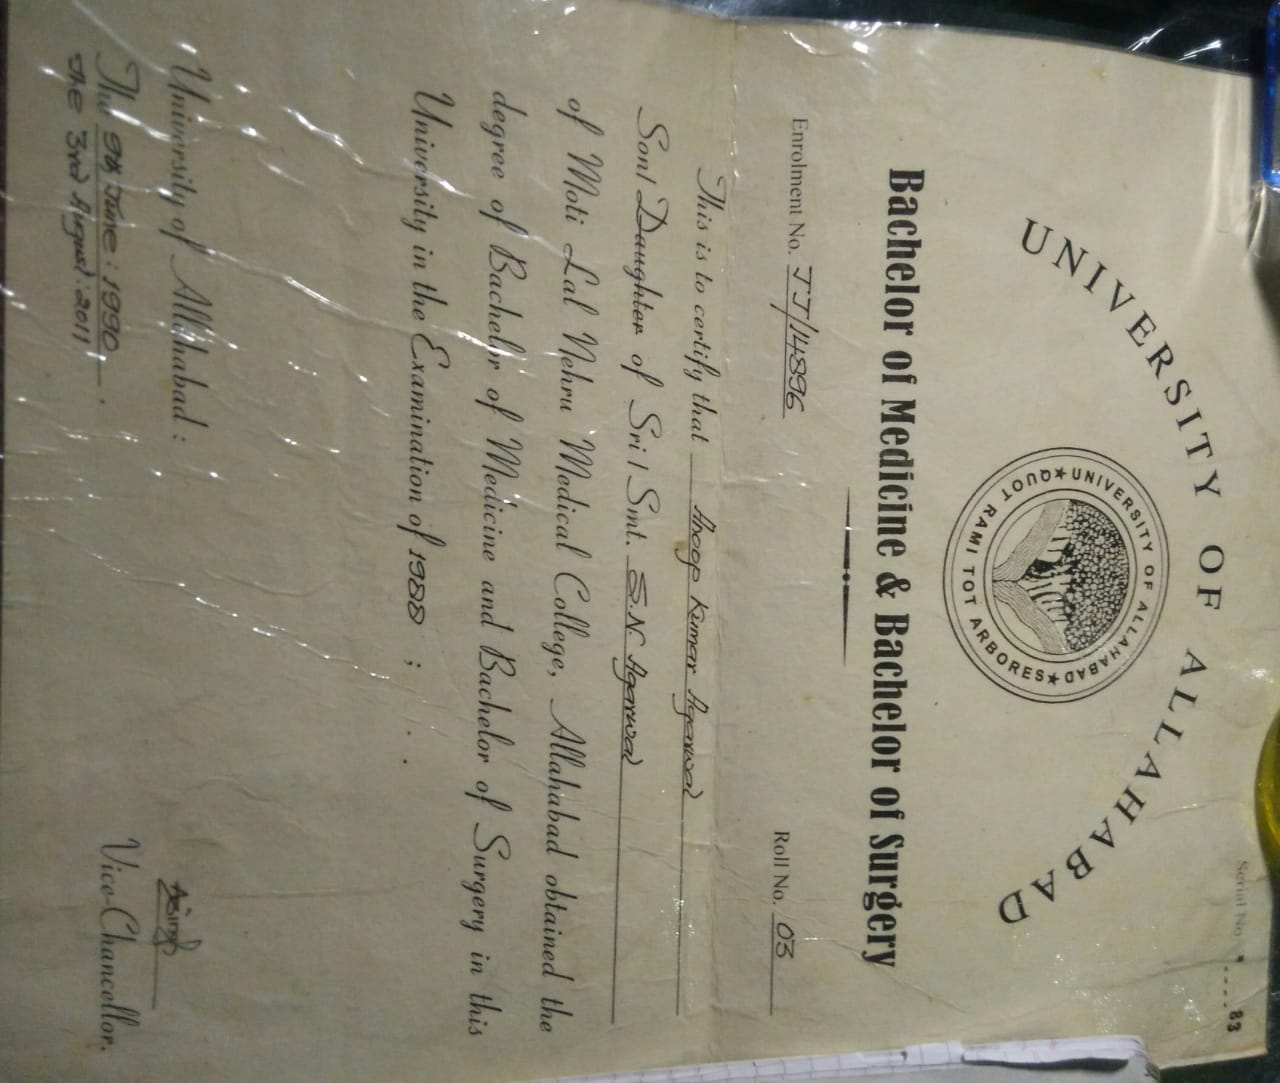 Serial No. ....83
UNIVERSITY OF ALLAHABAD
★ UNIVERSITY OF ALLAHABAD ★ QUOT RAMI TOT ARBORES
Bachelor of Medicine & Bachelor of Surgery
Enrolment No. JJ/14896 Roll No. 03
This is to certify that Anoop Kumar Agarwal
Son/Daughter of Sri/Smt. S.N. Agarwal
of Moti Lal Nehru Medical College, Allahabad obtained the
degree of Bachelor of Medicine and Bachelor of Surgery in this
University in the Examination of 1988 ;
University of Allahabad :
The 9th June : 1990 .
The 3rd August : 2011
Vice-Chancellor.